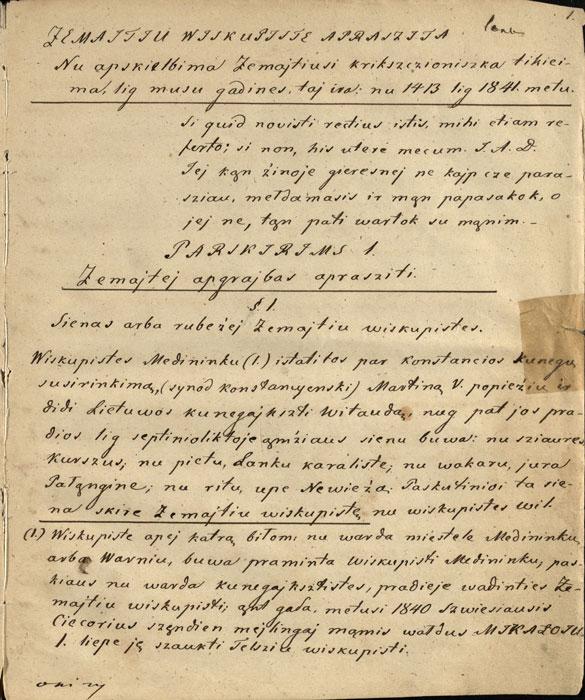 1.
ZEMAITIU WISKUPISTĘ APRASZITA
Nu apskielbima Żemajtiusi krikszczioniszka tikiei-
ma, lig musu gadines, taj ira: nu 1413 lig 1841. metu.
Si quid novisti rectius istis, mihi etiam re-
ferto; si non, his utere mecum. I. A. D.
Jej kąn żinoje gieresnej ne kajp cze para-
sziau, meldamasis ir mąn papasakok, o
jej ne, tąn pati wartok su mąnim. -
PARSKIRIMS 1.
Żemajtej apgrajbas aprasziti.
§. 1.
Sienas arba rubeżej Żemajtiu wiskupistes.
Wiskupistes Medininku (1.) istatitos par Konstancios kunegu
susirinkimą, (synod Konstancyenski) Martiną V. popieżiu ir
didi Lietuwos kunegajkszti Witaudą, nug pat jos pra-
dios lig septinioliktoje ąmżiaus sienu buwa: nu sziaures
Kurszus; nu pietu, Lanku karalistę; nu wakaru, jura
Pałąngine; nu ritu, upe Newieża. Paskutinioi ta sie-
na skire Żemajtiu wiskupistę nu wiskupistes wil.
(1.) Wiskupiste apej katrą biłom, nu warda miestele Medininku
arba Warniu, buwa praminta wiskupisti Medininku, pas-
kiaus nu warda kunegajksztistes, pradieje wadinties Że-
majtiu wiskupisti; ąnt gała, metusi 1840 Szwiesiausis
Ciecorius sząndien mejlingaj mąmis wałdus MIKAŁOJUS
1. liepe ję szaukti Telsziu wiskupisti.